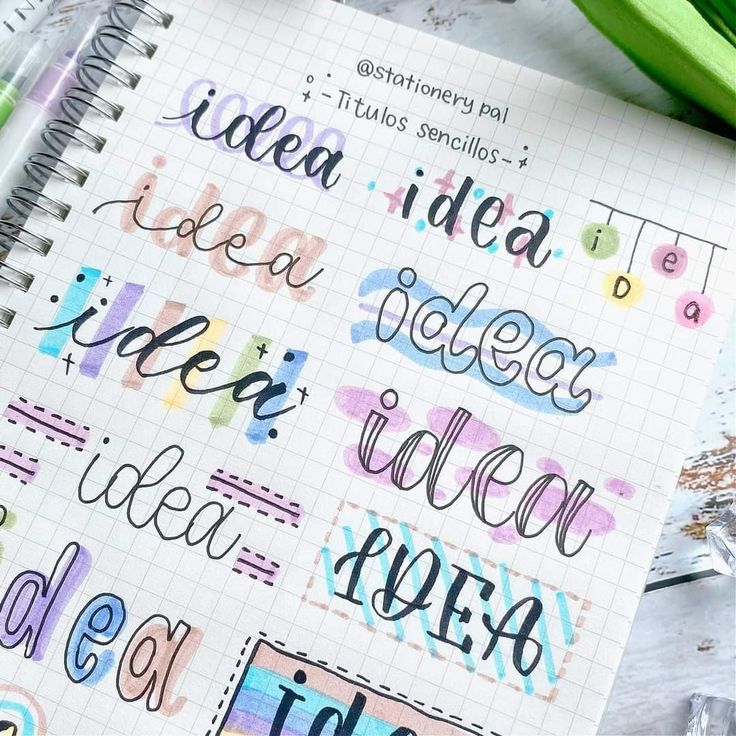 @stationery pal
-Titulos sencillos-
idea
idea
iDea
idea
idea
idea
idea
idea
IDEA
idea
idea